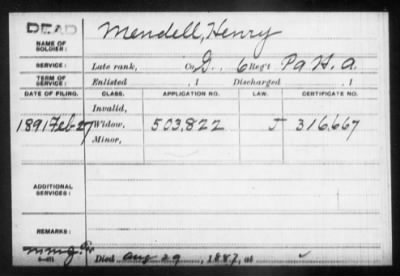 DEAD
Mendell, Henry
NAME OF
SOLDIER:
SERVICE:
Late rank,
Co. G, 6 Reg't Pa H. a.
TERM OF
SERVICE:
Enlisted , 1 Discharged , 1
DATE OF FILING. CLASS. APPLICATION NO. LAW. CERTIFICATE NO.
Invalid,
1891 Feb-27 Widow, 503.822 J 316,667
Minor,
ADDITIONAL
SERVICES:
REMARKS:
Died Aug 29, 1887, at